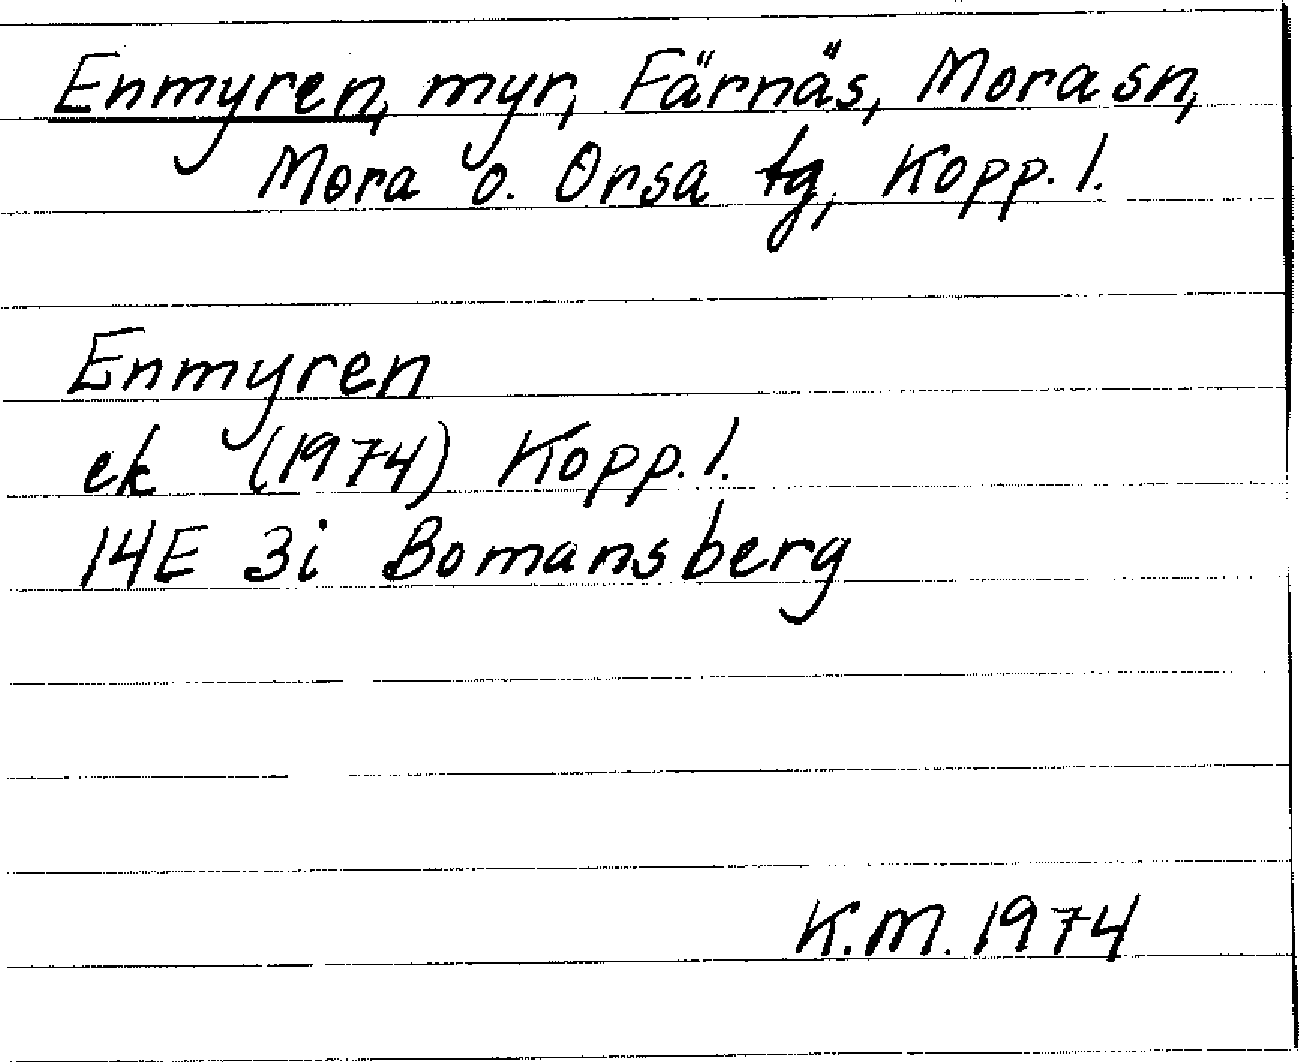 Enmyren, myr, Färnäs, Mora sn,
Mora o. Orsa tg, Kopp. l.
Enmyren
ek (1974) Kopp. l.
14E 3i Bomansberg
K.M. 1974